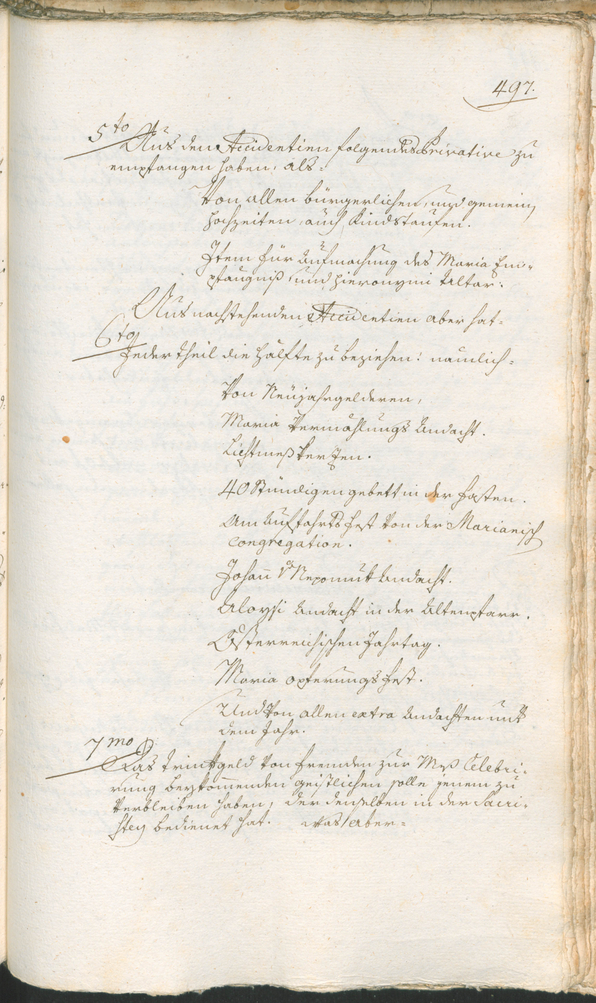 497.
5to Aus den Accidentien folgendes Privative zu
empfangen haben, als:
Von allen bürgerlichen, und gemein
hochzeiten, auch Kindstaufen.
Item für Aufmachung des Maria Em-
pfängniß, und Hieronymi Altar.
6to Aus nachstehenden Accidentien aber hat
Jeder theil die Hälfte zu beziehen: nämlich
Von Neüjahrgelderen,
Maria Vermählungs Andacht.
Lichtmeß Kerzen.
40 Stündigen gebett in der fasten.
Am Auffahrts fest von der Marianisch
Congregation.
Johann v: Nepomuk Andacht.
Aloysi Andacht in der Altenpfarr.
Österreichischen Jahrtag.
Maria opferungs fest.
Und von allen extra Andachten unter
dem Jahr.
7mo Das trinkgeld von fremden zur Meß Celebri-
rung bey kommenden geistlichen solle jenem zu
verbleiben haben, der denselben in der Sacri-
stey bedienet hat. was aber